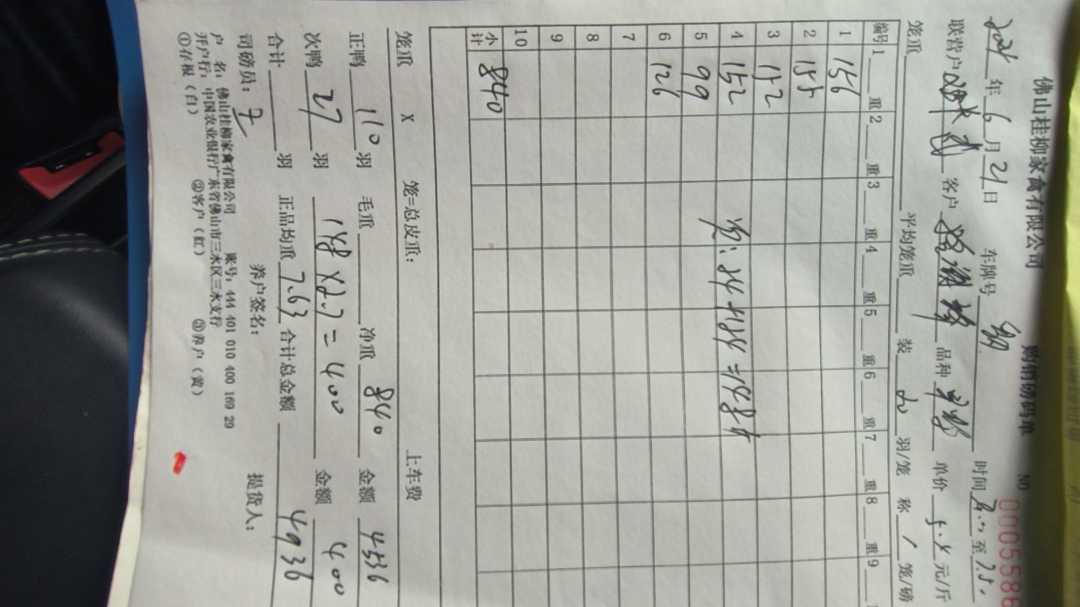 佛山桂柳家禽有限公司 购销磅码单 NO 0005586
2021 年 6 月 21 日 车牌号 时间 至
联营户 客户 品种 单价 5.4 元/斤
笼重 平均笼重 装 20 羽/笼 称 1 笼/磅
编号 1 重 2 重 3 重 4 重 5 重 6 重 7 重 8 重 9
1 156
2 155
3 152
4 152
5 99
6 126
7
8
9
10
小计 840
笼重 X 笼=总皮重: 上车费
正鸭 110 羽 毛重 净重 840 金额 4536
次鸭 27 羽 148X2.7=400 金额 400
合计 羽 正品均重 7.63 合计总金额 4936
司磅员: 养户签名: 提货人:
户 名: 佛山桂柳家禽有限公司 账号: 444 401 010 400 169 29
开户行: 中国农业银行广东省佛山市三水区三水支行
①存根(白) ②客户(红) ③养户(黄)